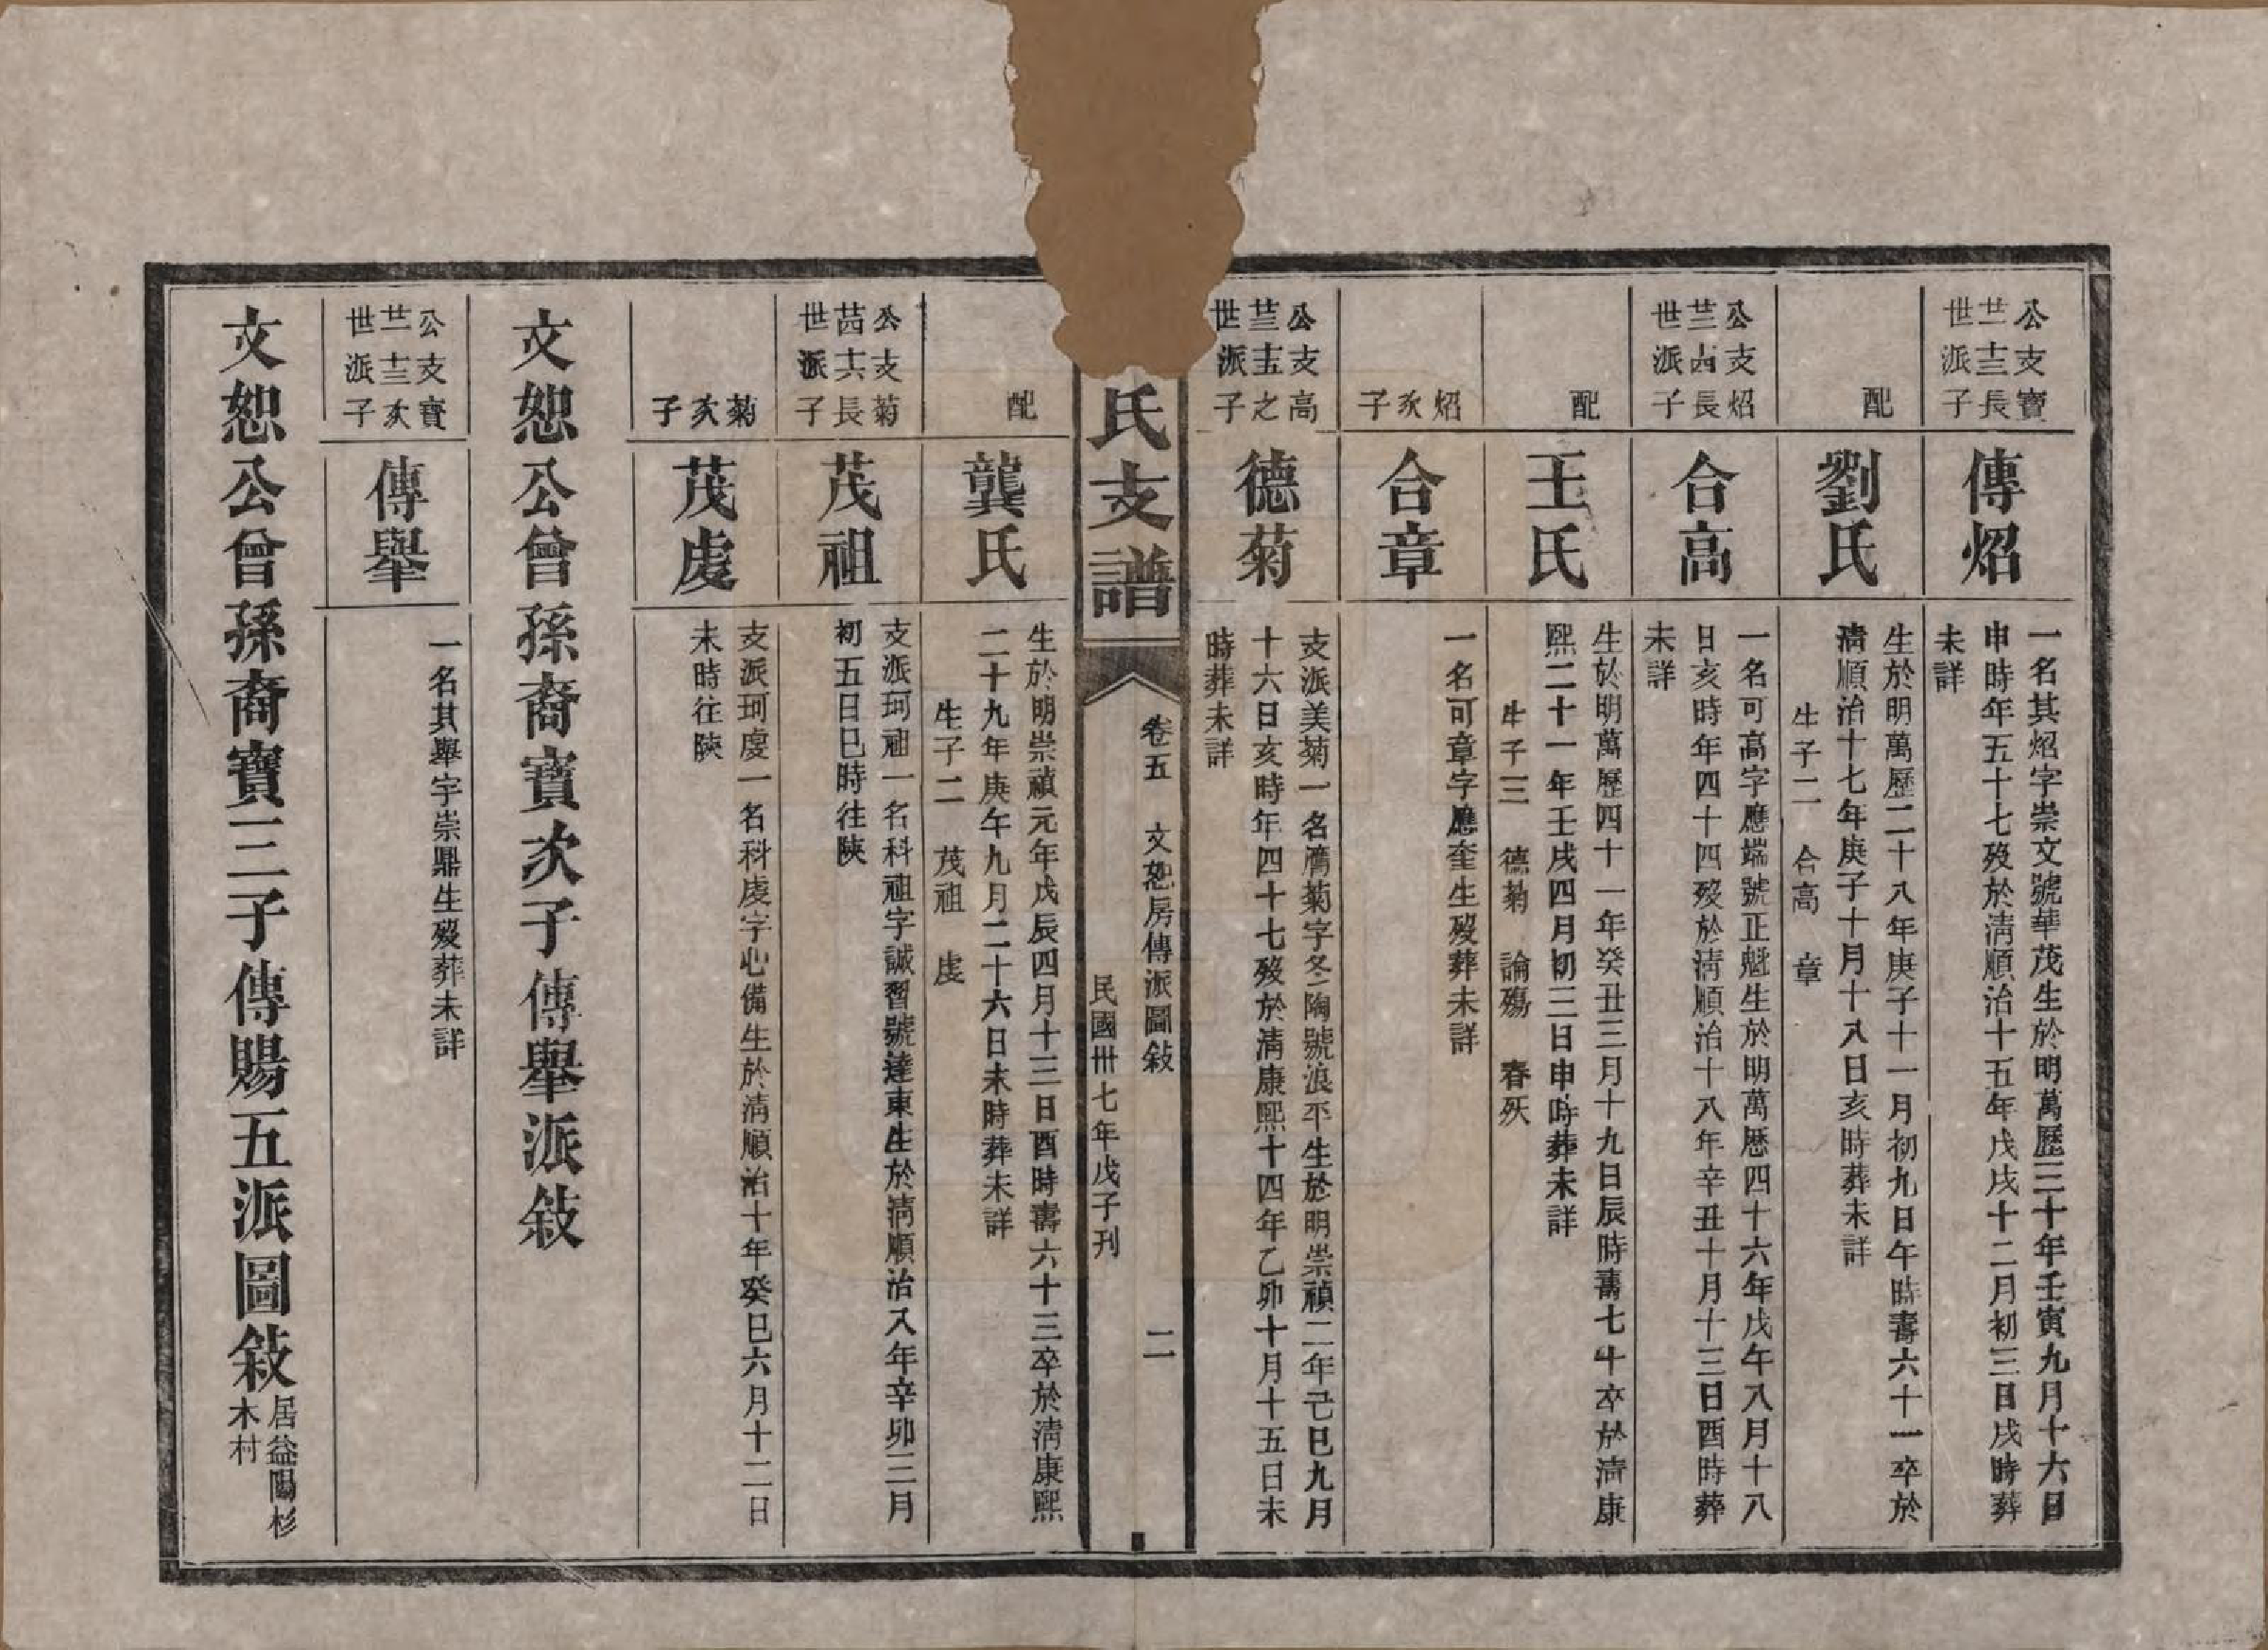 公支寶
世派子
傳炤
一名其炤字崇文號華茂生於明萬歷三十年壬寅九月十六日
申時年五十七歿於淸順治十五年戊戌十二月初三日戌時葬
未詳
配
劉氏
生於明萬歷二十八年庚子十一月初九日午時壽六十一卒於
淸順治十七年庚子十月十八日亥時葬未詳
生子二 合高 章
公支炤
世派子
合高
一名可高字應端號正魁生於明萬歷四十六年戊午八月十八
日亥時年四十四歿於淸順治十八年辛丑十月十三日酉時葬
未詳
配
王氏
生於明萬歷四十一年癸丑三月十九日辰時壽七十卒於淸康
熙二十一年壬戌四月初三日申時葬未詳
生子三 德菊 論殤 春殀
炤次子
合章
一名可章字應奎生歿葬未詳
公支高
世派子
德菊
支派美菊一名膺菊字冬陶號浪平生於明崇禎二年己巳九月
十六日亥時年四十七歿於淸康熙十四年乙卯十月十五日未
時葬未詳
氏支譜
卷五 文恕房傳派圖敍 二
民國卅七年戊子刊
配
龔氏
生於明崇禎元年戊辰四月十三日酉時壽六十三卒於淸康熙
二十九年庚午九月二十六日未時葬未詳
生子二 茂祖 虔
公支菊
世派子
茂祖
支派珂祖一名科祖字誠習號達東生於淸順治八年辛卯三月
初五日巳時往陝
菊次子
茂虔
支派珂虔一名科虔字心備生於淸順治十年癸巳六月十二日
未時往陝
文恕公曾孫裔寶次子傳舉派敍
公支寶
世派子
傳舉
一名其舉字崇鼎生歿葬未詳
文恕公曾孫裔寶三子傳賜五派圖敍 居益陽杉
木村